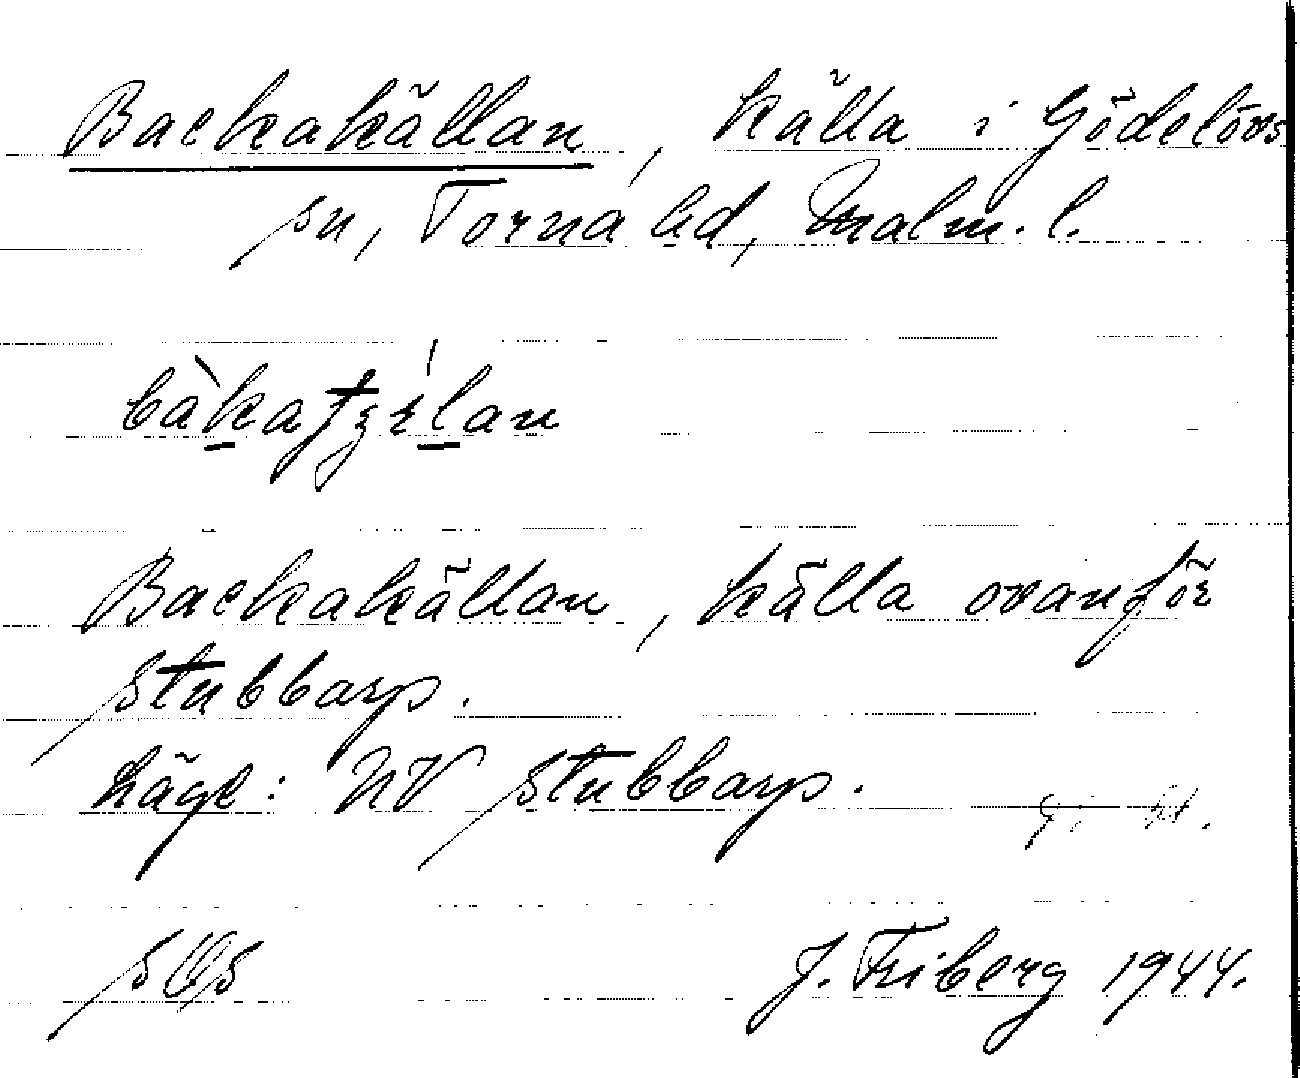 Backakällan, källa i Gödelövs
sn, Torna hd, Malm. l.
Backakällan, källa ovanför
Stubbarp.
Läge: NV Stubbarp.
J. Friberg 1944.